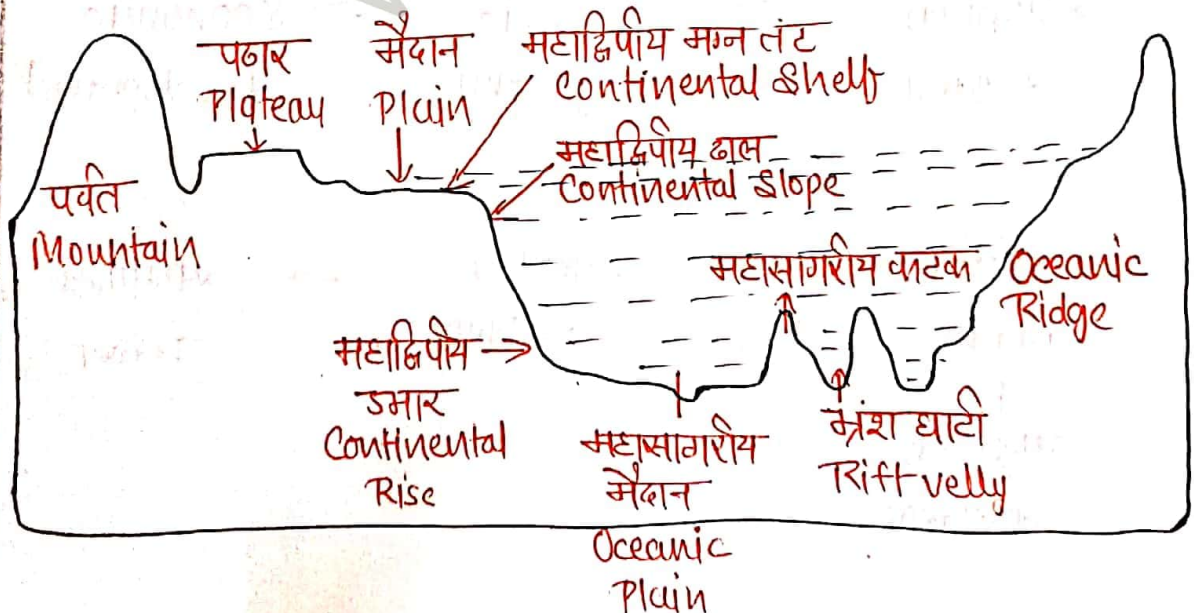 पठार
Plateau
मैदान
Plain
महाद्विपीय मग्न तंट
Continental Shelf
महाद्विपीय ढाल
Continental Slope
पर्वत
Mountain
महासागरीय कटक
Oceanic
Ridge
महाद्विपीय
उभार
Continental
Rise
महासागरीय
मैदान
Oceanic
Plain
भ्रंश घाटी
Rift velly